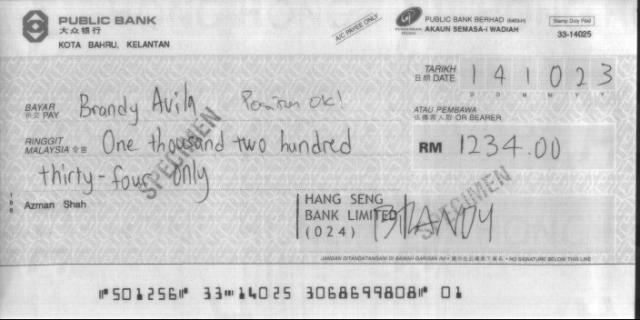 PUBLIC BANK
大众银行
KOTA BAHRU, KELANTAN
A/C PAYEE ONLY
PUBLIC BANK BERHAD (6463-H)
AKAUN SEMASA-i WADIAH
Stamp Duty Paid
33-14025
TARIKH
日期 DATE 1 4 1 0 2 3
D D M M Y Y
BAYAR
PAY Brandy Avila OK!
ATAU PEMBAWA
OR BEARER
RINGGIT
MALAYSIA One thousand two hundred
thirty-four only
RM 1234.00
SPECIMEN
SPECIMEN
Azman Shah
HANG SENG
BANK LIMITED
(024)
BRANDY
JANGAN DITANDATANGANI DI BAWAH GARISAN INI • NO SIGNATURE BELOW THIS LINE
⑈501256⑈ 33⑉14025 3068699808⑈ 01